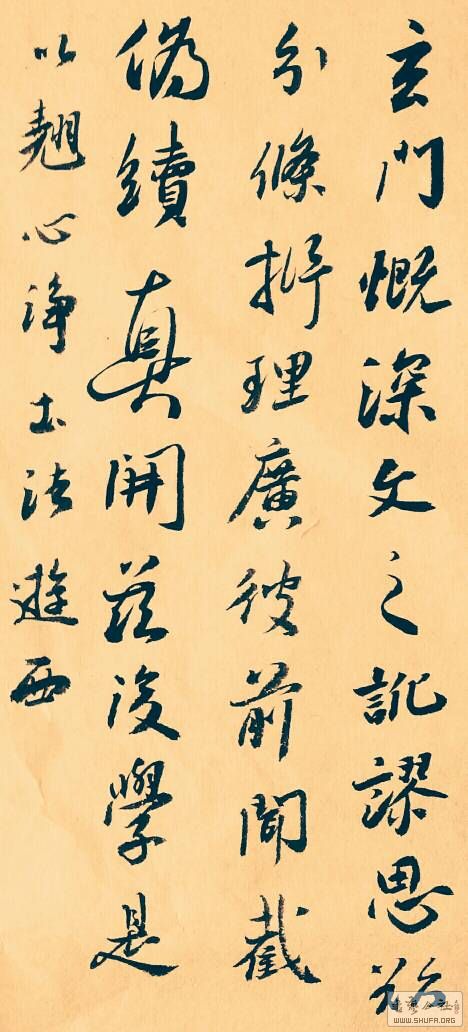 玄門慨深文之訛謬思欲
分條析理廣彼前聞截
偽續真開茲後學是
以翹心淨土法遊西
WWW.SHUFA.ORG